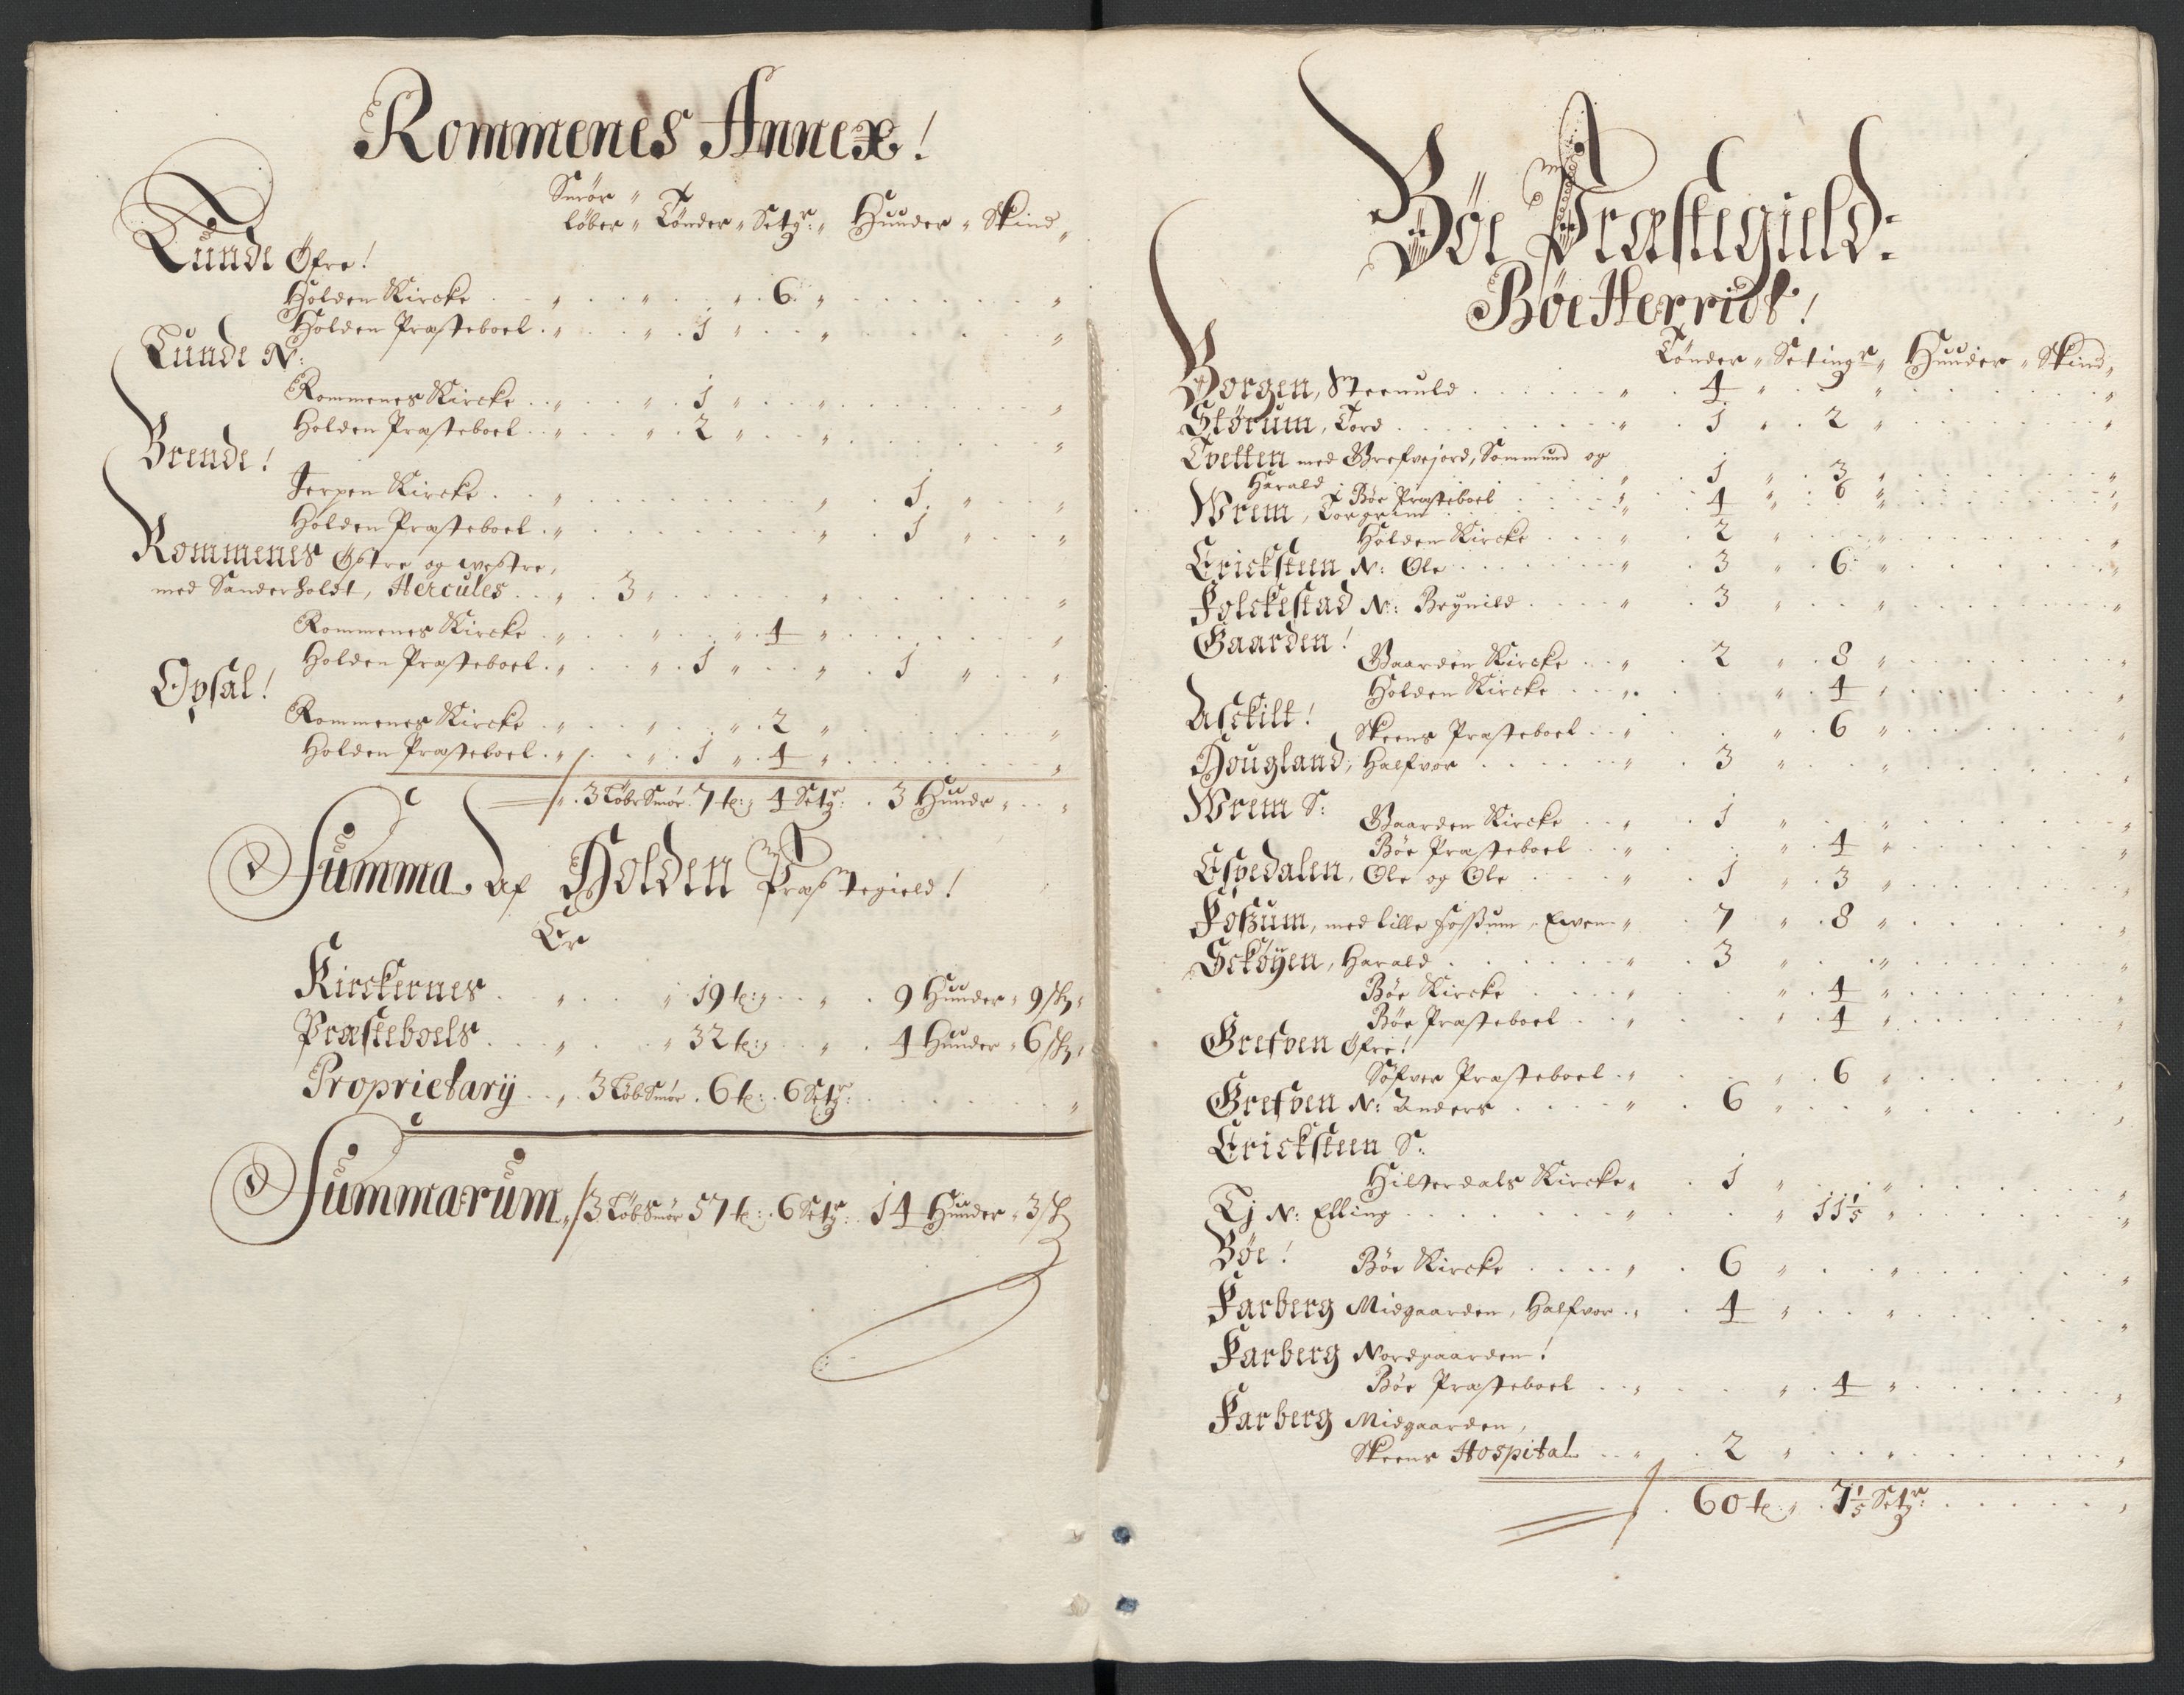 Rommenes Annex!
Smør "
løber " Tønder " Setgr: " Hunder " Skind "
Lunde Øfre!
Holden Kircke . . " . . " . . " . 6 " . . . "
Holden Præsteboel . " . . " . 1 " . . " . . . "
Lunde N:
Rommenes Kircke . . " . . " . 1 " . . " . . . "
Holden Præsteboel . . " . . " . 2 " . . " . . . "
Brende!
Jerpen Kircke . . " . . . " . 1 " . . "
Holden Præsteboel . " . . . " . 1 " . . "
Rommenes Østre og westre,
med Sanderholdt, Hercules . . " . 3 " . . . " . . . "
Rommenes Kircke . " . . " . . " . 4 " . . . "
Holden Præsteboel . " . . " . 1 " . . " . 1 " . . "
Opsal!
Rommenes Kircke . " . . " . . " . 2 " . . . "
Holden Præsteboel . " . . " . 1 " . 4 " . . . "
" . 3 Løb Smør . 7 t: " 4 Setgr: . 3 Hundr " . . "
Summa. Af Holden Præstegield!
Er
Kirckernes . . " . . " 19 t: " . . " . 9 Hunder " 9 sk "
Præsteboels . . . " . . " 32 t: " . . " . 4 Hunder " 6 sk "
Proprietarÿ . . " . 3 Løb Smør . 6 t: . 6 Setgr: . . . "
Summarum " 3 Løb Smør 57 t: . 6 Setgr: . 14 Hunder " 3 sk
Bøe Præstegield:
Bøe Herridt!
Tønder " Setingr " Hunder " Skind "
Borgen, Steenuld . . . " . 4 " . 9 " . . . "
Størum, Tord . . . " . 1 " . 2 " . . . "
Tvetten med Grefvejord, Sommund og
Harald . . . " . 1 " . 3 " . . . "
Bøe Præsteboel . . . " . 4 " . 6 " . . . "
Wrem, Torgrim
Holden Kircke . . . " . 2 " . . " . . . "
Ericksteen N: Ole . . . " . 3 " . 6 " . . . "
Folckestad N: Brynild . . . " . 3 " . . " . . . "
Gaarden!
Gaarden Kircke . . " . 2 " . 8 " . . . "
Holden Kircke . . " . . " . 4 " . . . "
Asckilt!
Skeens Præsteboel . . " . . " . 6 " . . . "
Hougland, Halfvor . . . " . 3 " . . " . . . "
Wrem S:
Gaarden Kircke . . " . 1 " . . " . . . "
Bøe Præsteboel . . " . . " . 4 " . . . "
Espedalen, Ole og Ole . . . " . 1 " . 3 " . . . "
Foszum, med lille Fossum, Ewen " . 7 " . 8 " . . . "
Sckøÿen, Harald . . . " . 3 " . . " . . . "
Bøe Kircke . . . " . . " . 4 " . . . "
Bøe Præsteboel . . " . . " . 4 " . . . "
Grefven Øfre!
Søfver Præsteboel . " . . " . 6 " . . . "
Grefven N: Anders . . . " . 6 " . . " . . . "
Ericksteen S:
Hitterdals Kircke " . 1 " . . " . . . "
Ej N: Elling . . . " . . " 11 1/5 " . . . "
Bøe!
Bøe Kircke . . . " . 6 " . . " . . . "
Farberg Midgaarden, Halfvor . " . 4 " . . " . . . "
Farberg Nordgaarden!
Bøe Præsteboel . . " . . " . 4 " . . . "
Farberg Midgaarden,
Skeens Hospital . . " . 2 " . . " . . . "
. 60 t: " . 7 1/5 Setgr: . . . "